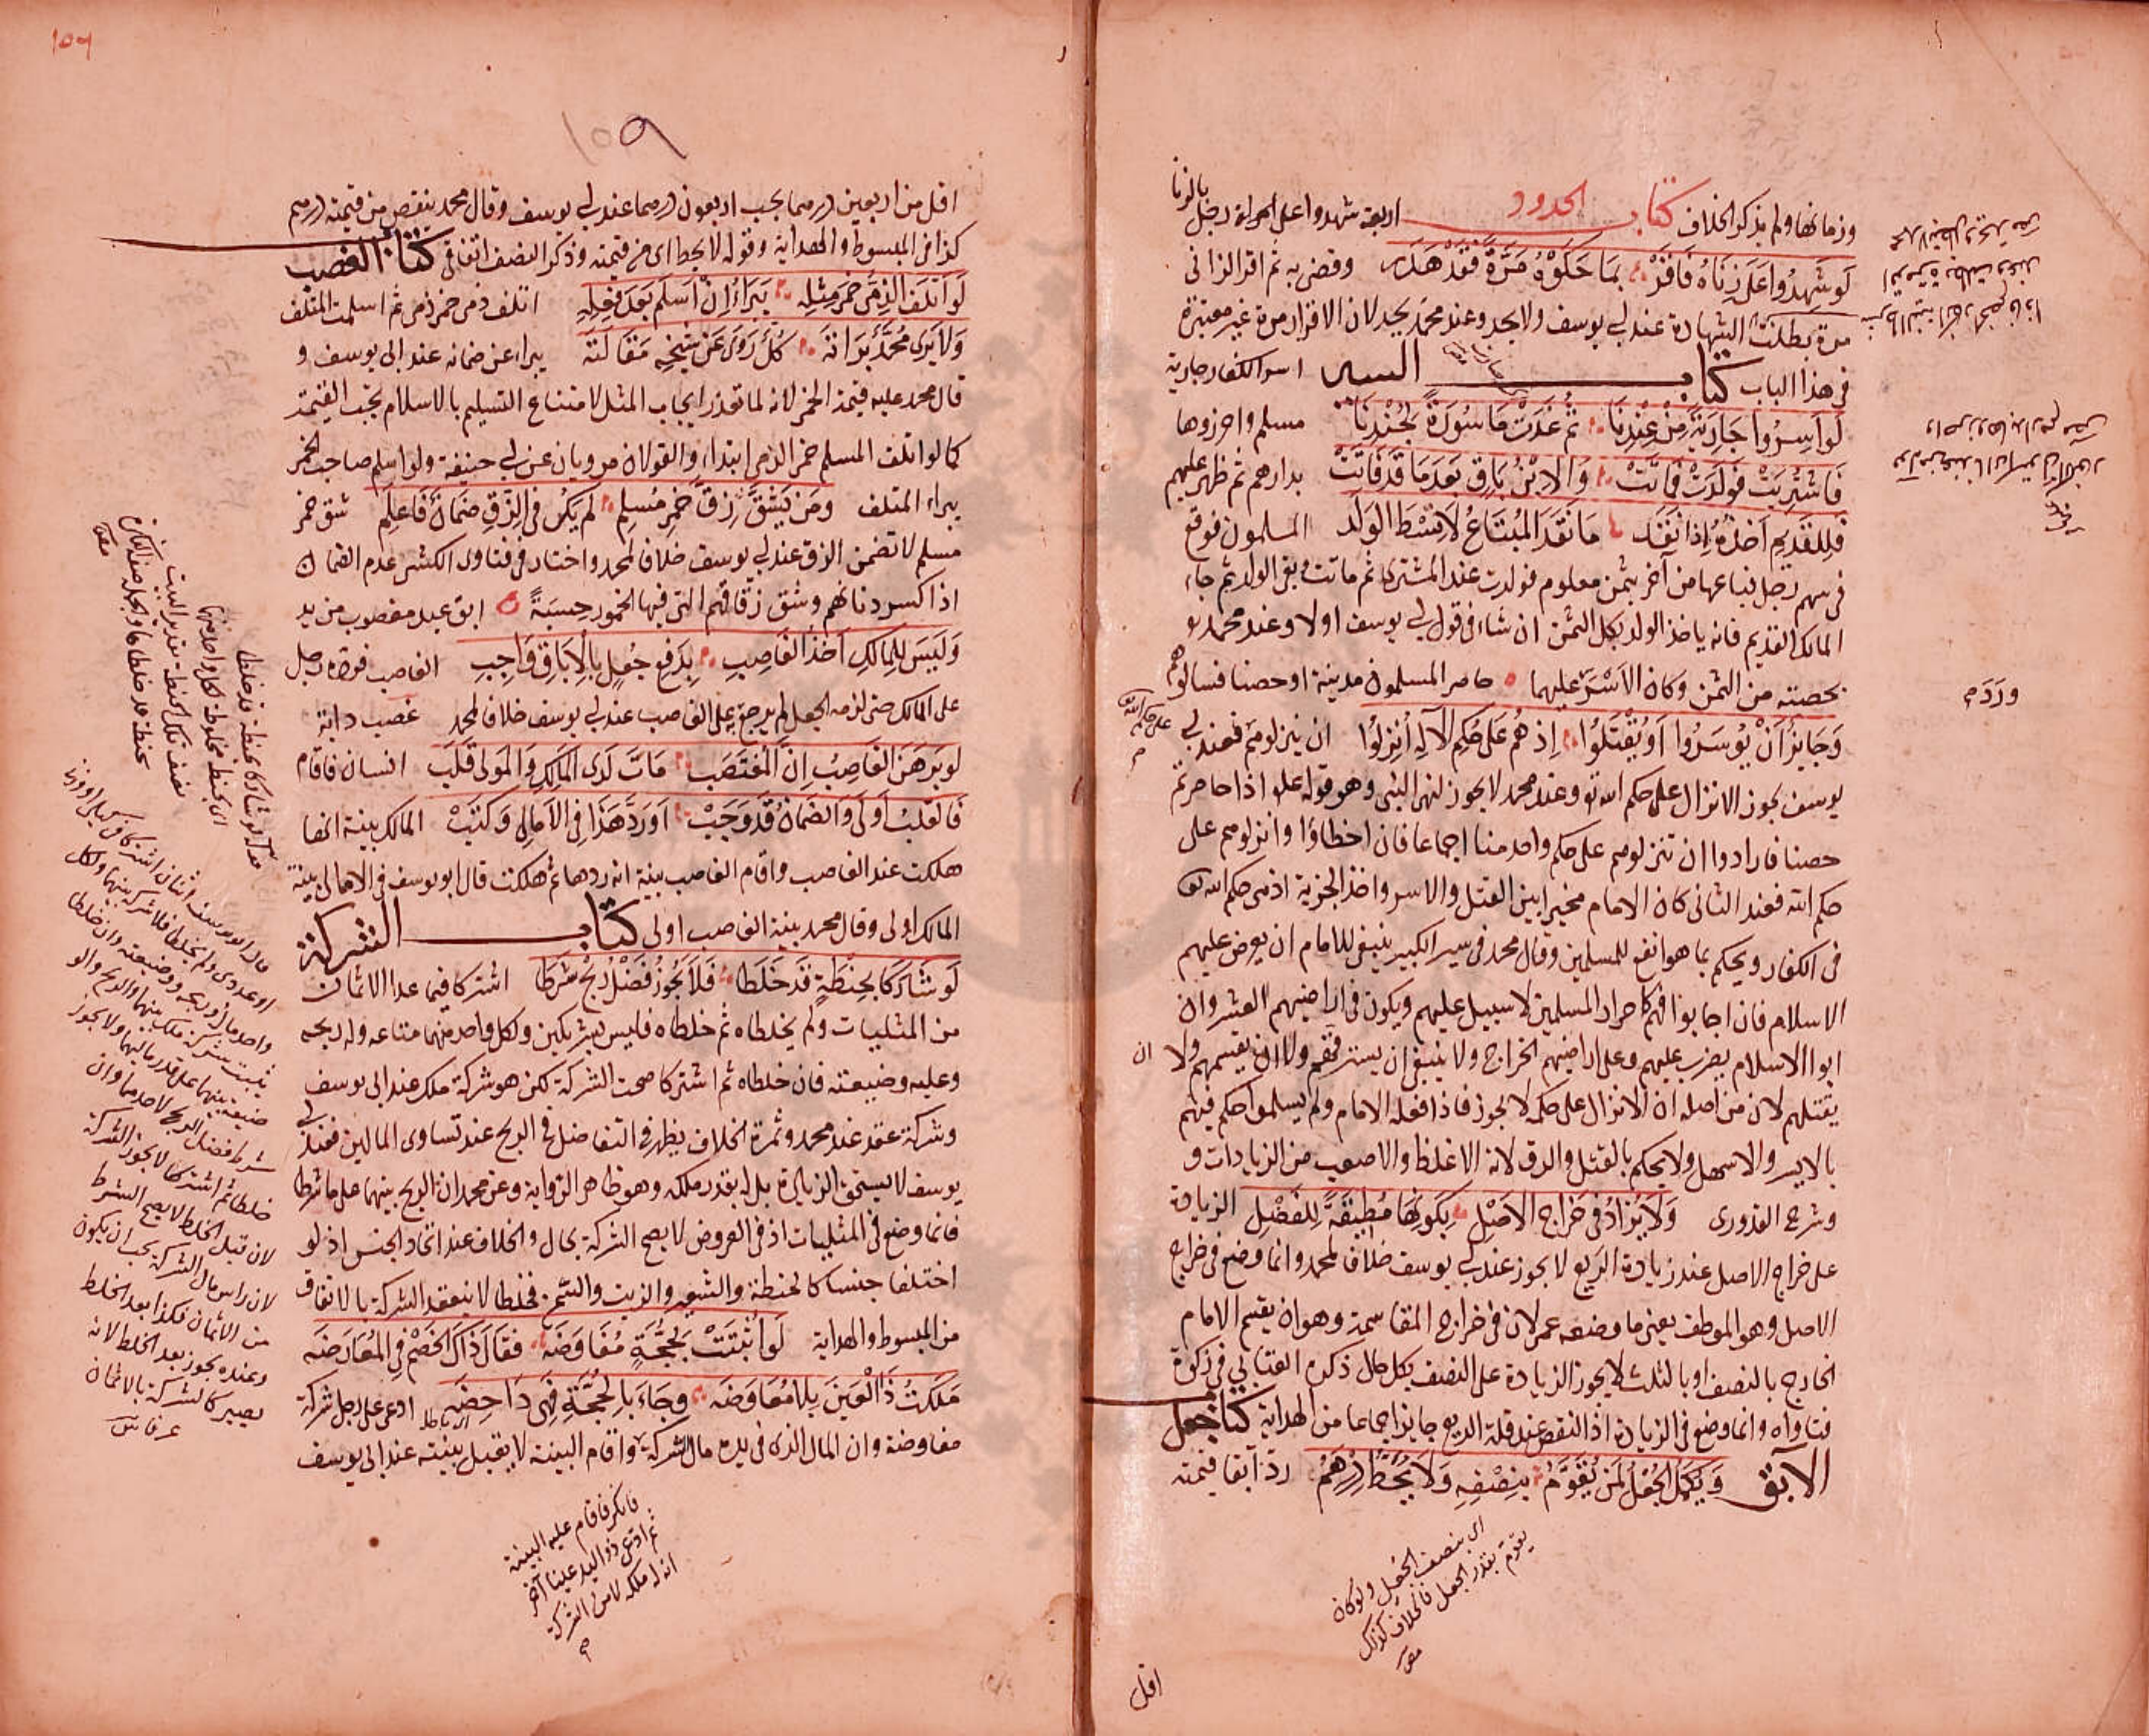 وزمانها ولم يذكر الخلاف كتاب الحدود اربعة شهدوا على امراة رجل بالزنا
لَو شَهِدُوا عَلَى زِنَاهُ فَاَقَرّْ بِمَا حَكَوْهُ مَرَّةً فَقَدْ هَدَرْ وقضى به ثم اقر الزانى
مرة بطلت الشهادة عند ابى يوسف ولا يحد وعند محمد يحد لان الاقرار مرة غير معتبرة
فى هذا الباب كتاب السير اسر الكفار جارية
لَو اَسِرُوا جَارِيَةً مِنْ عِنْدِنَا ثُمَّ غَدَتْ مَاسُورَةً لِجُنْدِنَا مسلم واحرزوها
فَاشْتُرِيَتْ فَوَلَدَتْ فَمَاتَتْ وَالابْنُ بَاقٍ بَعْدَمَا قَدْ فَاتَتْ بدارهم ثم ظهر عليهم
فَلِلْقَدِيمِ اَخْذُهُ اِذَا نَقَدْ مَا نَقَدَ المُبْتَاعُ لَا قِسْطَ الوَلَدْ المسلمون فوقع
فى سهم رجل فباعها من آخر بثمن معلوم فولدت عند المشترى ثم ماتت وبقى الولد ثم جاء
المالك القديم فانه ياخذ الولد بكل الثمن ان شاء فى قول ابى يوسف اولا وعند محمد هو
بحصته من الثمن وكان الاَسْرُ عليهما حاصر المسلمون مدينة او حصنا فسالوهم
وَجَايِزٌ اَنْ يُوسَرُوا اَوْ يُقْتَلُوا اِذْ هُمْ عَلَى حُكْمِ الاِلَهِ اُنْزِلُوا ان ينزلوهم فعند ابى
على حكم الله
يوسف يجوز الانزال على حكم الله تع وعند محمد لا يجوز لنهى النبى وهو قوله علم اذا حاصرتم
حصنا فارادوا ان تنزلوهم على حكم واحد منا اجماعا فان اخطاؤا وانزلوهم على
حكم الله فعند الثانى كان الامام مخيرا بين القتل والاسر واخذ الجزية اذ من حكم الله تع
فى الكفار ويحكم بما هو انفع للمسلمين وقال محمد فى سير الكبير ينبغى للامام ان يعرض عليهم
الاسلام فان اجابوا فهم كاحرار المسلمين لا سبيل عليهم ويكون فى اراضيهم العشر وان
ابوا الاسلام يضرب عليهم وعلى اراضيهم الخراج ولا ينبغى ان يسترقهم ولا ان يقسمهم ولا ان
يقتلهم لان من اصله ان الانزال على حكمه لا يجوز فاذا فعله الامام ولم يسلموا حكم فيهم
بالايسر والاسهل ولا يحكم بالقتل والرق لانه الاغلظ والاصعب من الزيادات و
وشرح القدورى وَلَا يُزَادُ فى خَرَاجِ الاَصْلِ بِكَونِهَا مُطِيقَةً لِلفَضْلِ الزيادة
على خراج الاصل عند زيادة الريع لا يجوز عند ابى يوسف خلافا لمحمد وانما وضع فى خراج
الاصل وهو الموظف يعنى ما وضعه عمر لان فى خراج المقاسمة وهو ان يقسم الامام
الخارج بالنصف او بالثلث لا يجوز الزيادة على النصف بكل حال ذكره العتابى فى زكوة
فتاواه وانما وضع فى الزيادة اذ النقص عند قلة الريع جايز اجماعا من الهداية كتاب جعل
الآبق وَيَكْمُلُ الجُعْلُ لِمَنْ يُقَوَّمُ بِنِصْفِهِ وَلَا يُحَطُّ دِرْهَمُ ردّ آبقا قيمته
وَرَدَ
اى بنصف الجعل ولو كان
يقوم بقدر الجعل فالخلاف كذلك
اقل
١٥٩
اقل من اربعين درهما يجب اربعون درهما عند ابى يوسف وقال محمد ينقص من قيمته درهم
كذا فى المبسوط والهداية وقوله لا يحط اى من قيمته وذكر النصف اتفاقى كتاب الغصب
لَو اَتْلَفَ الذِمِّىُ خَمْرَ مِثْلِهِ يَبْرَاءُ اِنْ اَسْلَمَ بَعْدَ فِعْلِهِ اتلف ذمى خمر ذمى ثم اسلمت المتلف
وَلَا يَرَى مُحَمَّدٌ بَرَاتَهْ كُلٌّ رَوَى عَنْ شَيْخِهِ مَقَالَتَهْ يبراء عن ضمانه عند ابى يوسف و
قال محمد عليه قيمة الخمر لانه لما تعذر ايجاب المثل لامتناع التسليم بالاسلام يجب القيمة
كما لو اتلف المسلم خمر الذمى ابتداء والقولان مرويان عن ابى حنيفة ولو اسلم صاحب الخمر
يبراء المتلف ومَن يَشُقّ زِقَّ خَمْرِ مُسلِمِ لَم يَكُنْ فى الزِّقِ ضَمَانٌ فَاعْلَمِ شق خمر
مسلم لا تضمن الزق عند ابى يوسف خلافا لمحمد واختار فى فتاوى الكشى عدم الضمان
اذا كسر دنانهم وشق زقاقهم التى فيها الخمور حِسبَةً ابق عبد مغصوب من يد
وَلَيسَ لِلمَالِكِ اَخْذُ الغَاصِبِ بِدَفعِ جُعلٍ بِالاِبَاقِ وَاجِبِ الغاصب فرده رجل
على المالك حتى لزمه الجعل لم يرجع على الغاصب عند ابى يوسف خلافا لمحمد غصب دابة
لَو بَرهَنَ الغَاصِبُ اِنَّ المُغْتَصَبْ مَاتَ لَدَى المَالِكِ وَالمَولى قَلَبْ انسان فاقام
فَالقَلبُ اَولَى وَالضَمَانُ قَد وَجَبْ اَورَدَ هَذَا فى الاَمَالِى وَكَتَبْ المالك بينة انها
هلكت عند الغاصب واقام الغاصب بينة انه ردها ثم هلكت قال ابو يوسف فى الامالى بينة
المالك اولى وقال محمد بينة الغاصب اولى كتاب الشركة
لَو شَارَكَا بِحِنْطَةٍ قَدْ خَلَطَا فَلَا يَجُوزُ فَضْلُ رِبْحٍ شَرَطَا اشتركا فيما عدا الاثمان
من المثليات ولم يخلطاه ثم خلطاه فليس بشريكين ولكل واحد منهما متاعه وله ربحه
وعليه وضيعته فان خلطاه ثم اشتركا صحت الشركة لكن هو شركة ملك عند ابى يوسف
وشركة عقد عند محمد وثمرة الخلاف يظهر فى التفاضل فى الربح عند تساوى المالين فعند ابى
يوسف لا يستحق الزيادة بل له بقدر ملكه وهو ظاهر الرواية وعن محمد ان الربح بينهما على ما شرطا
فانما وضع فى المثليات اذ فى العروض لا يصح الشركة بحال والخلاف عند اتحاد الجنس اذ لو
اختلفا جنسا كالحنطة والشعير والزيت والسمن فخلطا لا ينعقد الشركة بالاتفاق
من المبسوط والهداية لَو اَثبَتَتْ بِحُجَّةٍ مُفَاوَضَهْ فَقَالَ ذَاكَ الخَصْمُ فى المُعَارَضَهْ
مَلَكْتُ ذَا العَيْنَ بِلَا مُفَاوَضَهْ وجَاءَ بِالحُجَّةِ فَهِىَ دَاحِضَهْ اى باطلة ادعى على رجل شركة
مفاوضة وان المال الذى فى يده مال الشركة واقام البينة لا يقبل بينته عند ابى يوسف
فانكر فاقام عليه البينة
ثم ادعى ذو اليد عينا آخر
انه له ملكه لا من الشركة
قال ابو يوسف اثنان اشتركا فى كيلى او وزنى
او عددى ولم يخلطا فلا شركة بينهما ولكل
واحد ماله وربحه ووضيعته وان خلطا
يثبت شركة ملك بينهما والربح والو
ضيعة بينهما على قدر ماليهما ولا يجوز
شرط فضل الربح لاحدهما وان
خلطا ثم اشتركا لا يجوز الشركة
لان قبل الخلط لا يصح الشرط
لان راس مال الشركة يجب ان يكون
من الاثمان فكذا بعد الخلط
وعنده يجوز بعد الخلط لانه
يصير كالشركة بالاثمان